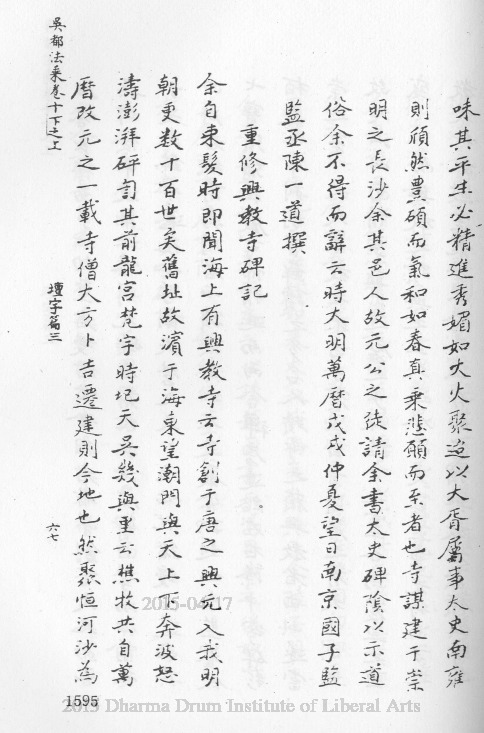 味其平生必精進秀媚如大火聚迨以大胥屬事太史南雍
則頎然豊碩而氣和如春真乗悲願而至者也寺謀建于崇
明之長沙余其邑人故元公之徒請余書太史碑陰以示道
俗余不得而辭云時大明萬曆戊戌仲夏望日南京國子監
監丞陳一道撰
重修興教寺碑記
余自束髮時即聞海上有興教寺云寺創于唐之興元入我明
朝更數十百世矣舊址故濵于海東望潮門與天上下奔波怒
濤澎湃砰訇其前龍宮梵宇時圮天吳幾與重云樵牧共自萬
曆改元之一載寺僧大方卜吉遷建則今地也然聚恒河沙為
吳都法乘卷十下之上
壇宇篇三
六七
1595
2015-04-17
2015 Dharma Drum Institute of Liberal Arts